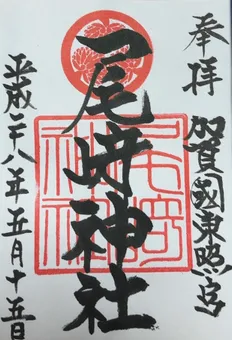 奉拝
加賀國東照宮
尾崎神社
平成二八年五月十五日
尾﨑神社